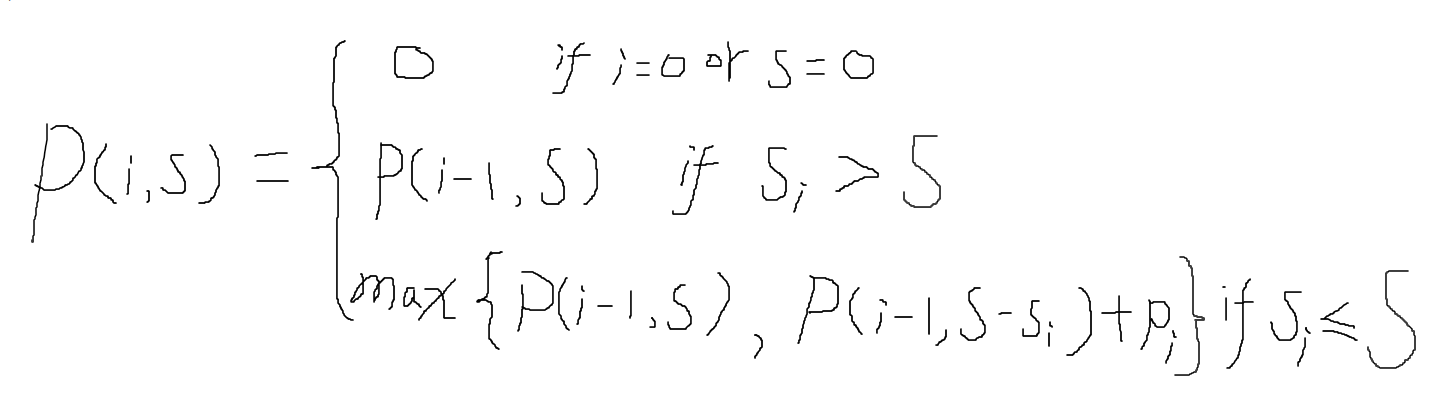 0 if i=0 or s=0
P(i,s) = { P(i-1, S) if S_i > S
max { P(i-1,S), P(i-1,S-s_i)+p_i } if S_i ≤ S